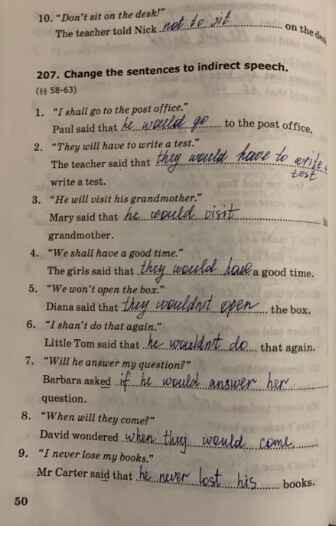 10. "Don't sit on the desk!"
The teacher told Nick not to sit on the desk
207. Change the sentences to indirect speech.
(§§ 58-63)
1. "I shall go to the post office."
Paul said that he would go to the post office.
2. "They will have to write a test."
The teacher said that they would have to write a
test
write a test.
3. "He will visit his grandmother."
Mary said that he would visit
grandmother.
4. "We shall have a good time."
The girls said that they would have a good time.
5. "We won't open the box."
Diana said that they wouldn't open the box.
6. "I shan't do that again."
Little Tom said that he wouldn't do that again.
7. "Will he answer my question?"
Barbara asked if he would answer her
question.
8. "When will they come?"
David wondered when they would come
9. "I never lose my books."
Mr Carter said that he never lost his books.
50